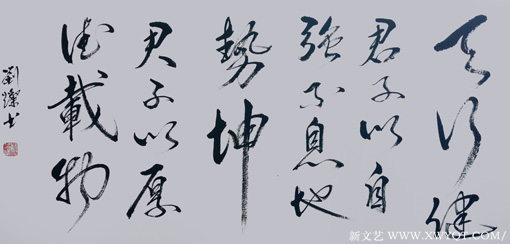 天行健
君子以自
强不息地
勢坤
君子以厚
德載物
劉燦书
新文艺 WWW.XWYOT.COM/